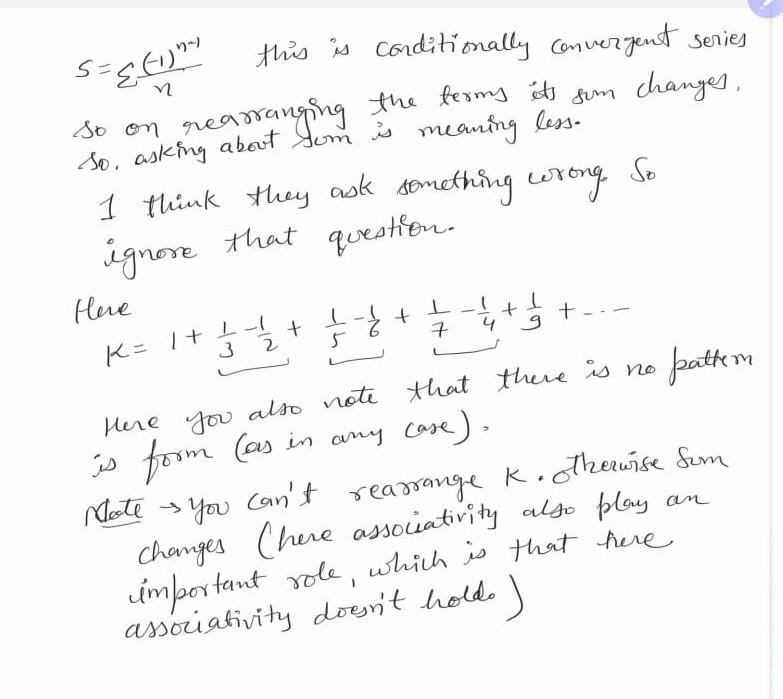 S = Σ (-1)^{n-1}/n this is conditionally convergent series
so on rearranging the terms its sum changes,
So, asking about sum is meaning less.
I think they ask something wrong So
ignore that question.
Here
K = 1 + 1/3 - 1/2 + 1/5 - 1/6 + 1/7 - 1/4 + 1/9 + ...-
Here you also note that there is no pattern
is form (as in any case).
Note → You can't rearrange K. otherwise sum
changes (here associativity also play an
important role, which is that here
associativity doesn't holds)